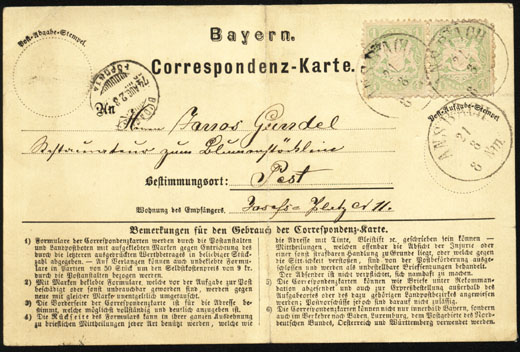 Post-Abgabe-Stempel.
Bayern.
Correspondenz-Karte.
Post-Aufgabe-Stempel
ANSBACH
21
8
Nm.
An
Herrn Janos Gundel
Restaurateur zum Blumenstöcklein
Bestimmungsort: Pest
Wohnung des Empfängers. Josefs-Platz 11.
Bemerkungen für den Gebrauch der Correspondenz-Karte.
1) Formulare der Correspondenzkarten werden durch die Postanstalten
und Landpostboten mit aufgeklebten Marken gegen Entrichtung des
durch die letzteren ausgedrückten Werthbetrages in beliebiger Stückzahl
abgegeben. — Am Verlangen können auch unbeklebte Formulare
in Partien von 50 Stück um den Selbstkostenpreis von 9 kr.
durch die Postanstalten bezogen werden.
2) Mit Marken beklebte Formulare, welche vor der Aufgabe zur Post
beschädigt oder sonst unbrauchbar geworden sind, werden gegen
neue mit gleicher Marke unentgeltlich umgetauscht.
3) Die Vorderseite der Correspondenzkarte ist für die Adresse bestimmt,
welche möglichst vollständig und deutlich anzugeben ist.
4) Die Rückseite des Formulars kann in ihrer ganzen Ausdehnung
zu brieflichen Mittheilungen jeder Art benützt werden, welche wie
die Adresse mit Tinte, Bleistift ec. geschrieben sein können —
Mittheilungen, welchen offenbar die Absicht der Injurie oder
einer sonst strafbaren Handlung zu Grunde liegt, oder welche gegen
die Sittlichkeit verstoßen, sind von der Postbeförderung ausgeschlossen
und werden als unbestellbare Briefsendungen behandelt.
Der Absender ist nicht verpflichtet, sich namhaft zu machen.
5) Die Correspondenzkarten können wie Briefe unter Recommandation
abgesendet und auch zur Expreßbestellung außerhalb des
Aufgabeortes oder des dazu gehörigen Landpostbezirkes angewiesen
werden; Postvorschüsse jedoch sind darauf nicht zulässig.
6) Die Correspondenzkarten können nicht nur innerhalb Bayern, sondern
auch im Verkehr nach Baden, Luxemburg, dem Postgebiete des Norddeutschen
Bundes, Oesterreich und Württemberg verwendet werden.